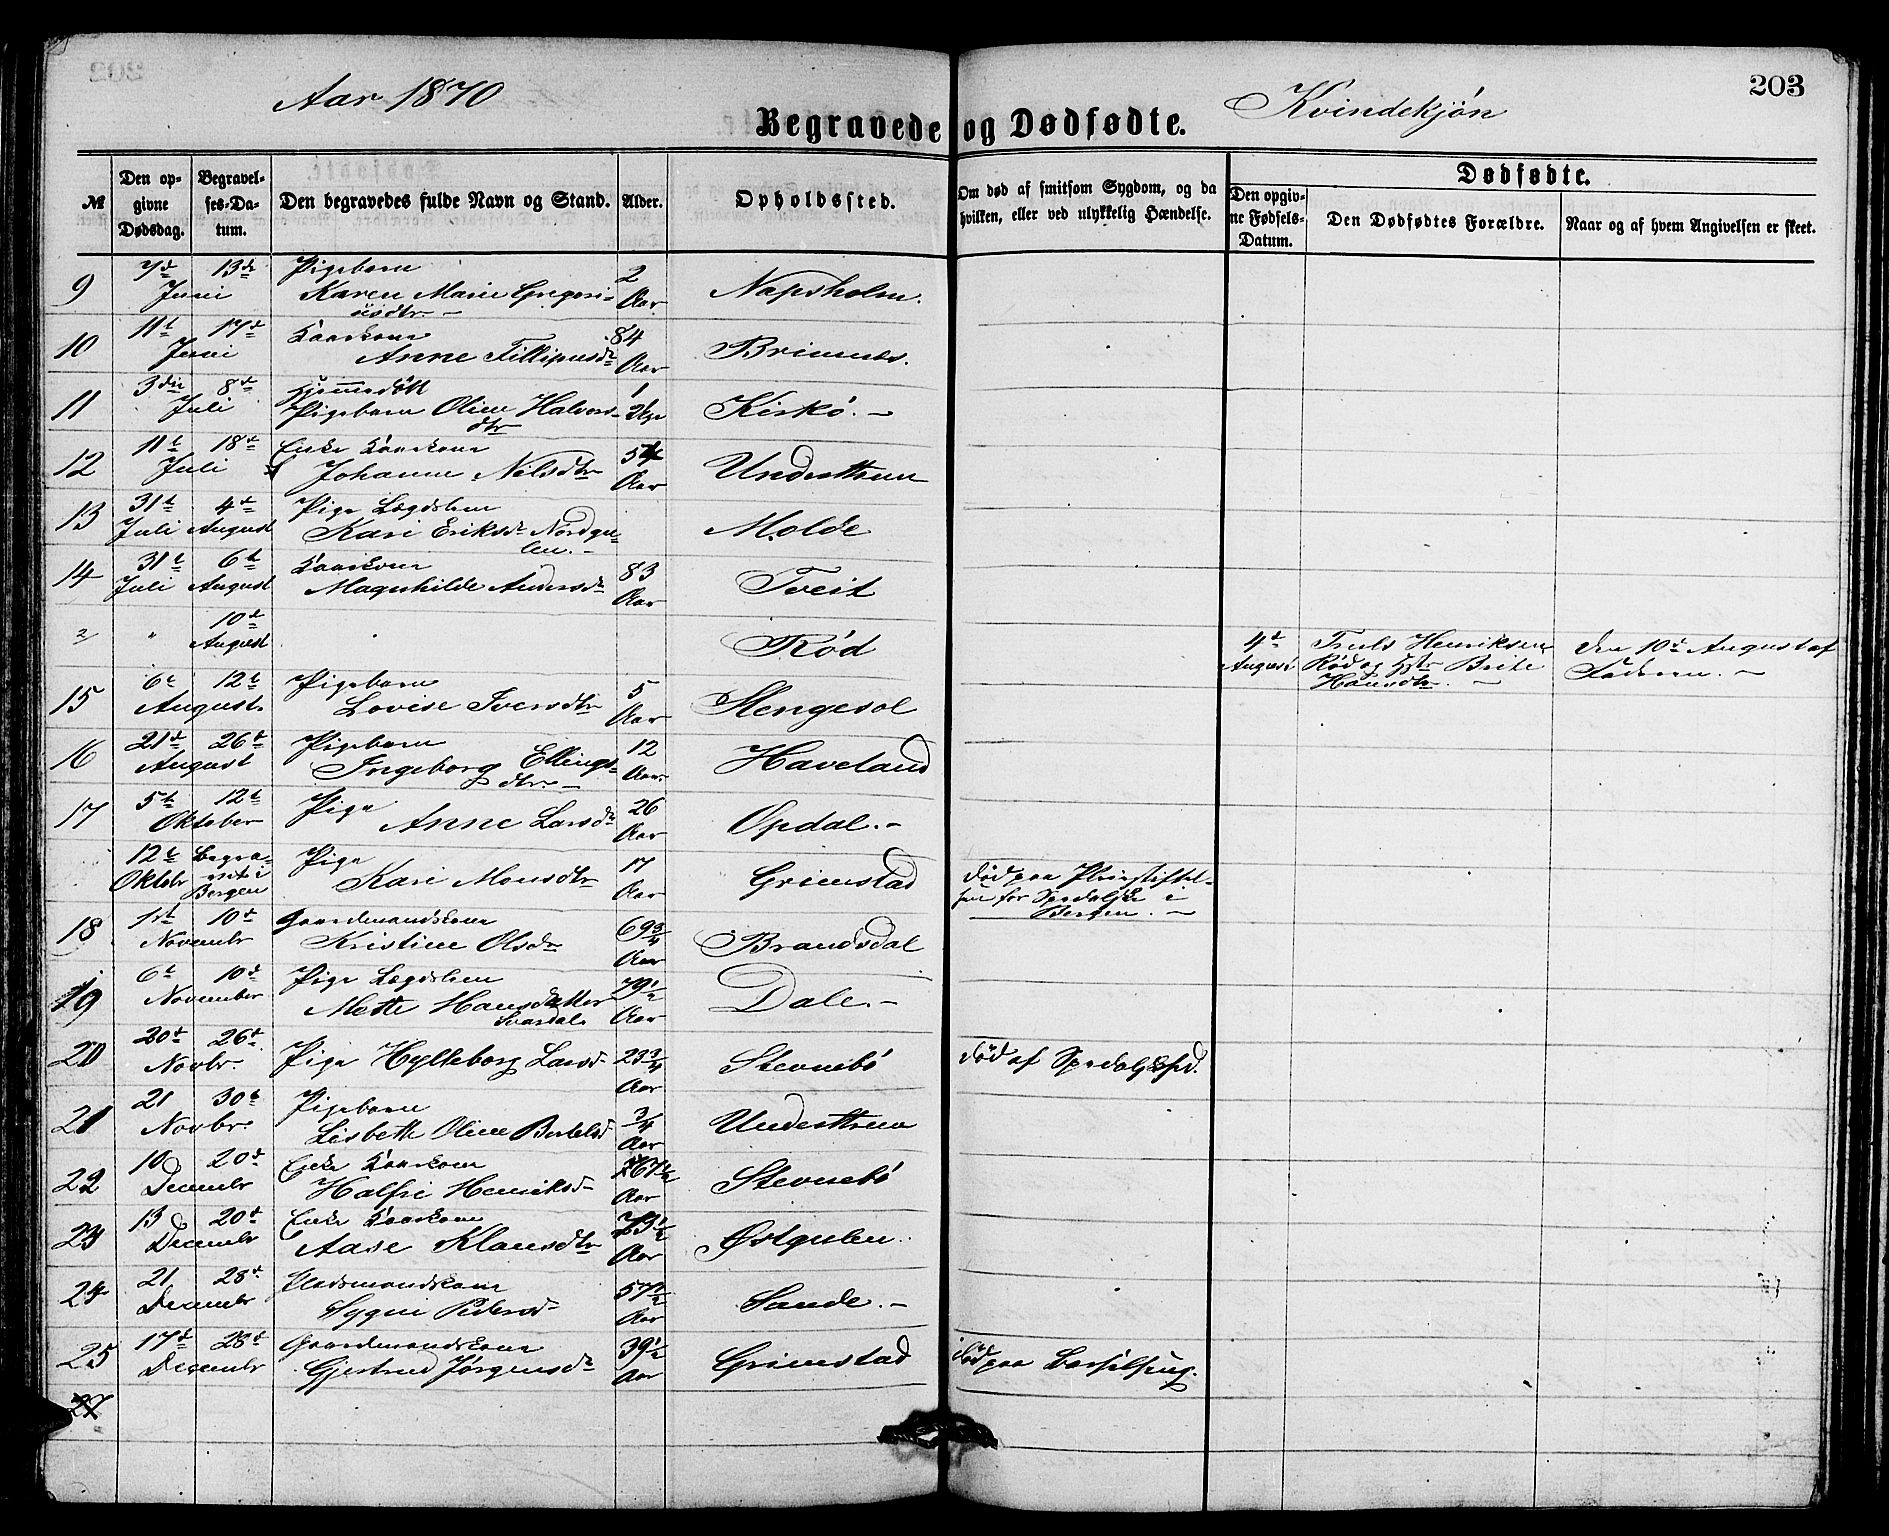 203
Aar 1870
Kvindekjøn
Begravede og Dødfødte.
№
Den opgivne Dødsdag.
Begravelses-Datum.
Den begravedes fulde Navn og Stand.
Alder.
Opholdssted.
Om død af smitsom Sygdom, og da hvilken, eller ved ulykkelig Hændelse.
Dødfødte.
Den opgivne Fødsels-Datum.
Den Dødfødtes Forældre.
Naar og af hvem Angivelsen er skeet.
9 7de 13de Juni Pigebarn Karen Marie Gregoriusdtr. 2 Aar. Napsholm.
10 11t 17d Juni Kaarkone Anne Fillipusdr 84 Aar Brimnæs.
11 3die 8d Juli Hjemmedøbt Pigebarn Oline Halvorsdtr Kirkø.
12 11t 18d Juli Enke Kaarkone Johanne Nilsdtr 54 Aar Understhun
13 31t Juli 4d August Pige Lægdslem Kari Eriksdr Nordgulen. Molde
14 31t Juli 6t August Kaarkone Magnhilde Andersdr 83 Aar Tveit
2 " 10d August Rød 4d August Truls Henriksen Rød og Hstr Brite Hansdtr. den 10d August af Faderen.
15 6t 12t August. Pigebarn Lovise Iversdtr 5 Aar Stengesol
16 21d 26d August Pigebarn Ingeborg Ellingsdtr. 12 Aar. Haveland
17 5t 12t Oktober Pige Anne Larsdr 26 Aar Opdal.
12t Oktobr Begravet i Bergen Pige Kari Monsdtr 17 Aar Grimstad død paa Pleiestiftelsen for Spedalske i Bergen.
18 1st 10d Novembr Gaardmandskone Kristine Olsdr 69 3/4 Aar Brandsdal
19 6t 10d November Pige Lægdslem Mette Hansdatter Svardal 79 1/2 Aar Dale.
20 20d 26d Novbr. Pige Hylleborg Larsd 23 3/4 Aar Stevnebø død af Spedalskhed.
21 21 30t Novbr. Pigebarn Lisbeth Oline Bertelsd 3/4 Aar Understhun
22 10 20d Decembr Enke Kaarkone Halfri Henriksd 67 1/2 Aar Stevnebø
23 13 20d Decembr Enke Kaarkone Aase Klausdtr 73 1/2 Aar Østgulen.
24 21 28d Decembr Pladsmandskone Sygni Pedersd 57 1/2 Aar Sande.
25 17d 28d Decembr Gaardmandskone Gjertrud Jørgensdr 39 1/2 Aar Grimstad død paa Barselseng.
27